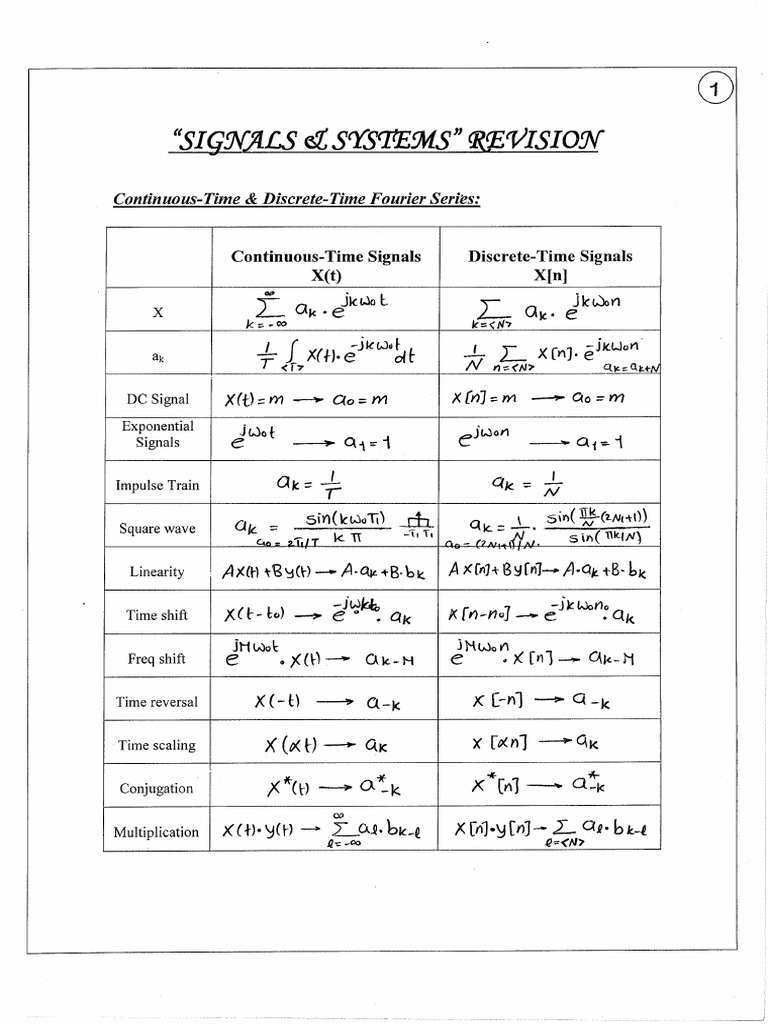 1
“SIGNALS & SYSTEMS” REVISION
Continuous-Time & Discrete-Time Fourier Series:
Continuous-Time Signals X(t) | Discrete-Time Signals X[n]
X | ∞ Σ k=-∞ ak . e^jkω0t | Σ k=<N> ak . e^jkω0n
ak | 1/T ∫<T> X(t).e^-jkω0t dt | 1/N Σ n=<N> X[n].e^-jkω0n ak=ak+N
DC Signal | X(t)=m → a0=m | X[n]=m → a0=m
Exponential Signals | e^jω0t → a1=1 | e^jω0n → a1=1
Impulse Train | ak = 1/T | ak = 1/N
Square wave | ak = sin(kω0T1)/kπ a0=2T1/T -T1 T1 | ak = 1/N . sin(πk/N (2N1+1))/sin(πk/N) a0=(2N1+1)/N
Linearity | AX(t)+By(t) → A.ak+B.bk | AX[n]+By[n] → A.ak+B.bk
Time shift | X(t-t0) → e^-jω0kt0 . ak | X[n-n0] → e^-jkω0n0 . ak
Freq shift | e^jMω0t . X(t) → ak-M | e^jMω0n . X[n] → ak-M
Time reversal | X(-t) → a-k | X[-n] → a-k
Time scaling | X(αt) → ak | X[αn] → ak
Conjugation | X*(t) → a*-k | X*[n] → a*-k
Multiplication | X(t).y(t) → ∞ Σ l=-∞ al.bk-l | X[n].y[n] → Σ l=<N> al.bk-l